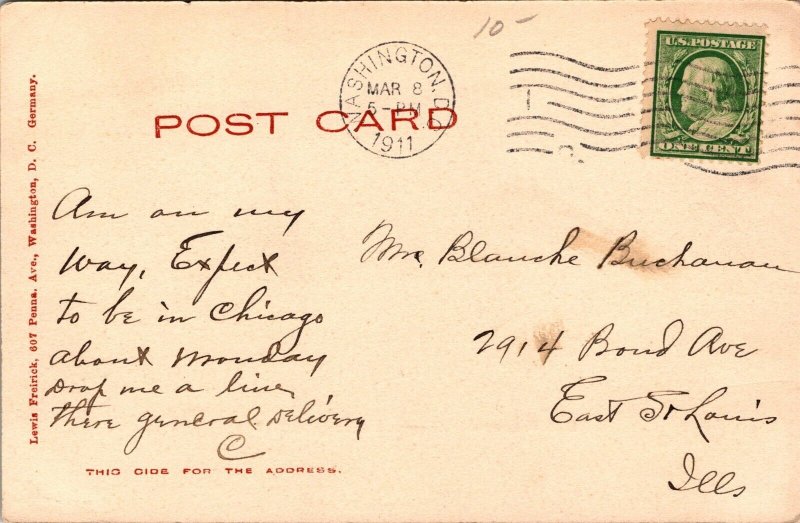 10-
U.S. POSTAGE
ONE CENT
WASHINGTON, D.C.
MAR 8
5-PM
1911
POST CARD
Lewis Freirick, 607 Penna. Ave., Washington, D. C. Germany.
Am on my
way, Expect
to be in Chicago
about Monday
Drop me a line
there general Delivery
C
THIS SIDE FOR THE ADDRESS.
Mrs. Blanche Buchanan
2914 Bond Ave
East St Louis
Ills